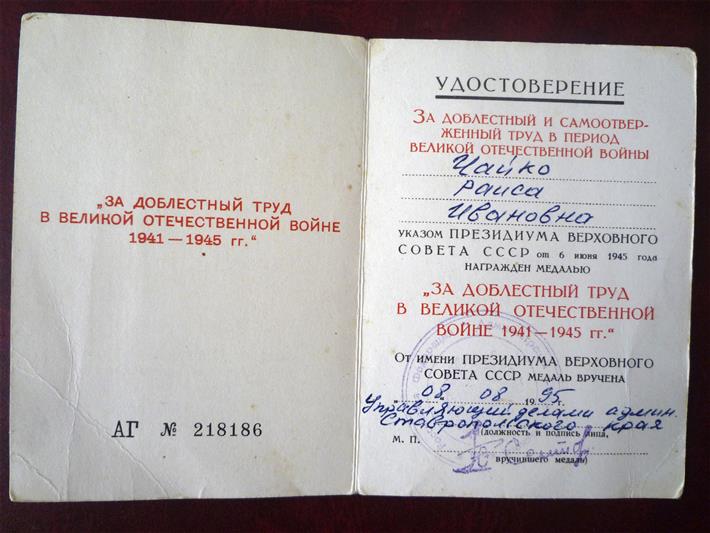 „ЗА ДОБЛЕСТНЫЙ ТРУД
В ВЕЛИКОЙ ОТЕЧЕСТВЕННОЙ ВОЙНЕ
1941 — 1945 гг.“
АГ № 218186
УДОСТОВЕРЕНИЕ
ЗА ДОБЛЕСТНЫЙ И САМООТВЕР-
ЖЕННЫЙ ТРУД В ПЕРИОД
ВЕЛИКОЙ ОТЕЧЕСТВЕННОЙ ВОЙНЫ
Чайко
Раиса
Ивановна
УКАЗОМ ПРЕЗИДИУМА ВЕРХОВНОГО
СОВЕТА СССР от 6 июня 1945 года
НАГРАЖДЕН МЕДАЛЬЮ
„ЗА ДОБЛЕСТНЫЙ ТРУД
В ВЕЛИКОЙ ОТЕЧЕСТВЕННОЙ
ВОЙНЕ 1941 — 1945 гг.“
ОТ ИМЕНИ ПРЕЗИДИУМА ВЕРХОВНОГО
СОВЕТА СССР МЕДАЛЬ ВРУЧЕНА
„08“ 08 1995 г.
Управляющий делами админ.
Ставропольского края
(должность и подпись лица,
М. П.
вручившего медаль)